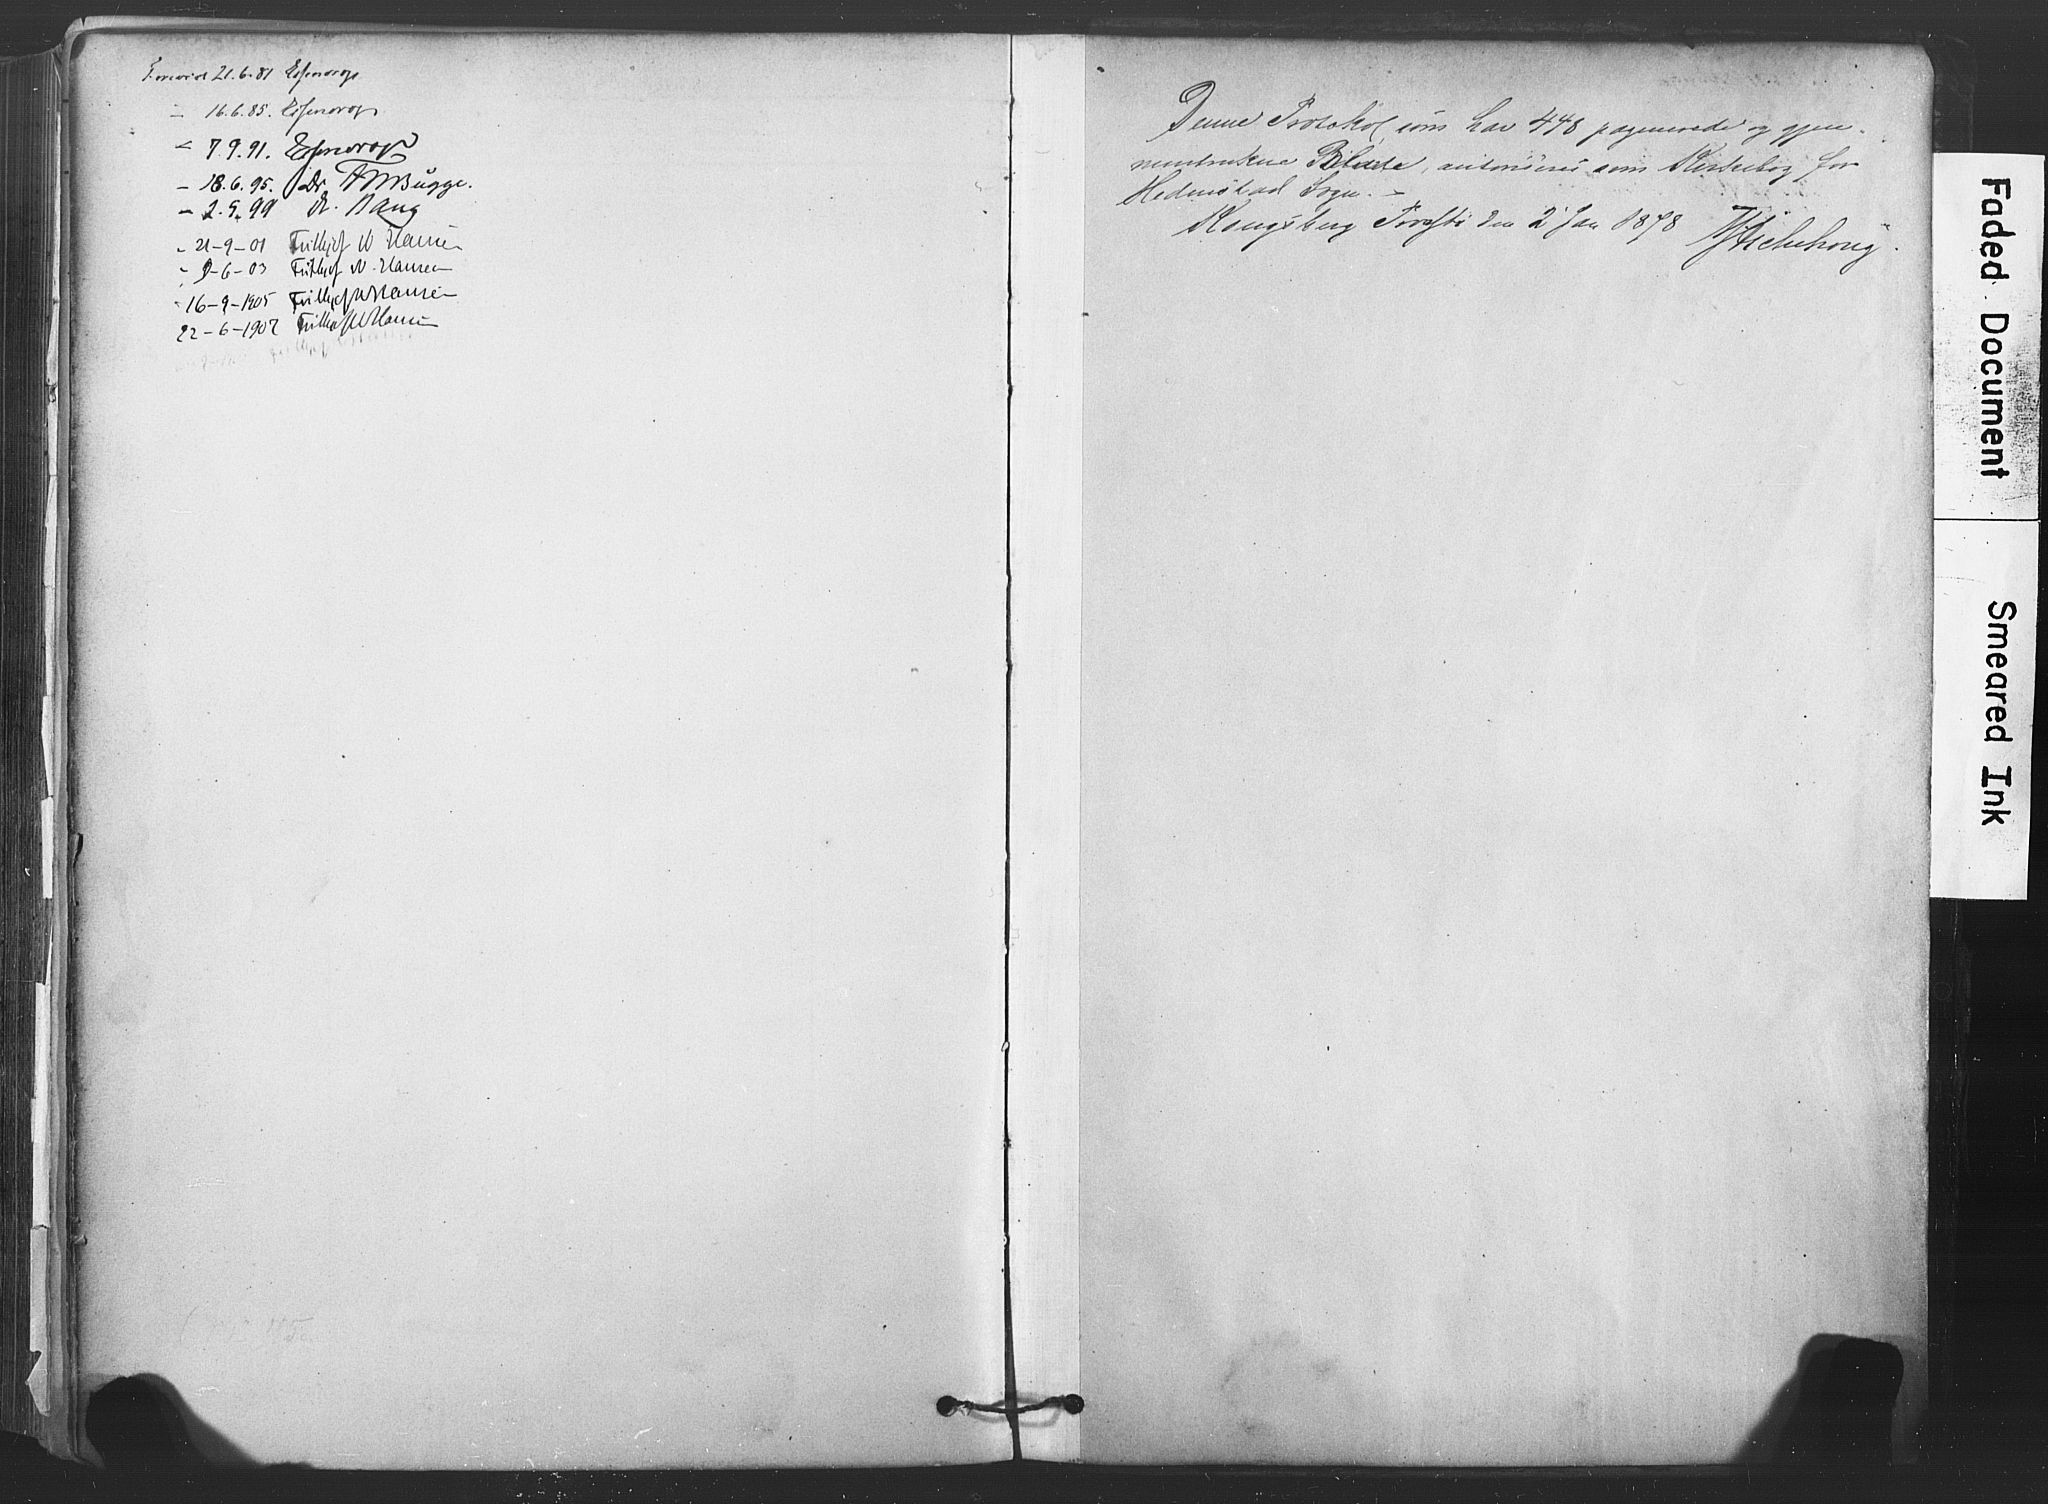 21.6.81 Essendrop
– 16.6.85. Essendrop
– 7.9.91. Essendrop
– 18.6.95. Dr FWBugge.
– 2.9.99 Dr. Bang
- 21-9-01 Frithjof W Hansen
- 9-6-03 Frithjof W. Hansen
- 16-9-1905 Frithjof W Hansen
22-6-1907 Frithjof W Hansen
Denne Protokol som har 448 paginerede og gjen-
nemtrukne Blade, autoriseres som Kirkebog for
Hedenstad Sogn. –
Kongsberg Provsti den 2 Jan 1878
Faded Document
Smeared Ink